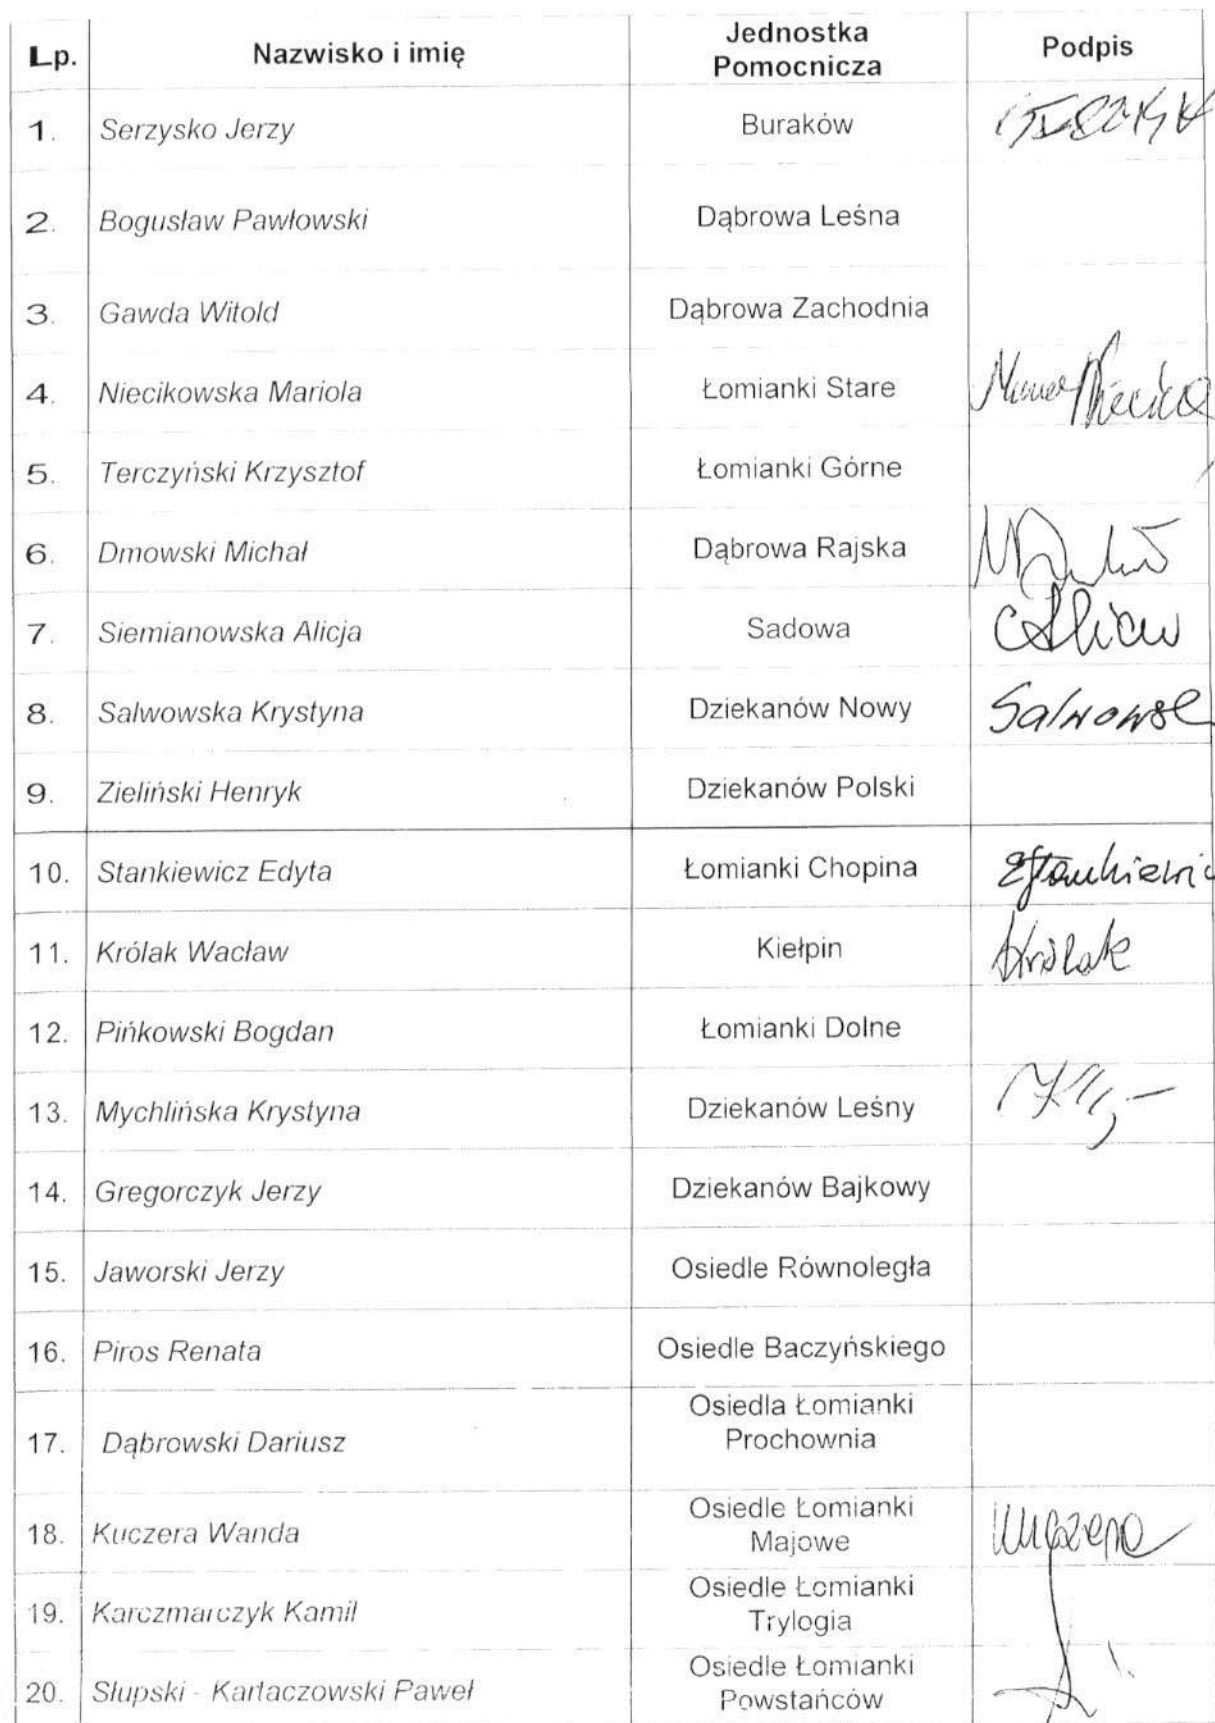 Lp. Nazwisko i imię Jednostka Pomocnicza Podpis
1. Serzysko Jerzy Buraków
2. Bogusław Pawłowski Dąbrowa Leśna
3. Gawda Witold Dąbrowa Zachodnia
4. Niecikowska Mariola Łomianki Stare
5. Terczyński Krzysztof Łomianki Górne
6. Dmowski Michał Dąbrowa Rajska
7. Siemianowska Alicja Sadowa
8. Salwowska Krystyna Dziekanów Nowy Salwows
9. Zieliński Henryk Dziekanów Polski
10. Stankiewicz Edyta Łomianki Chopina EStankiewic
11. Królak Wacław Kiełpin Królak
12. Pińkowski Bogdan Łomianki Dolne
13. Mychlińska Krystyna Dziekanów Leśny
14. Gregorczyk Jerzy Dziekanów Bajkowy
15. Jaworski Jerzy Osiedle Równoległa
16. Piros Renata Osiedle Baczyńskiego
17. Dąbrowski Dariusz Osiedla Łomianki Prochownia
18. Kuczera Wanda Osiedle Łomianki Majowe
19. Karczmarczyk Kamil Osiedle Łomianki Trylogia
20. Słupski - Kartaczowski Paweł Osiedle Łomianki Powstańców